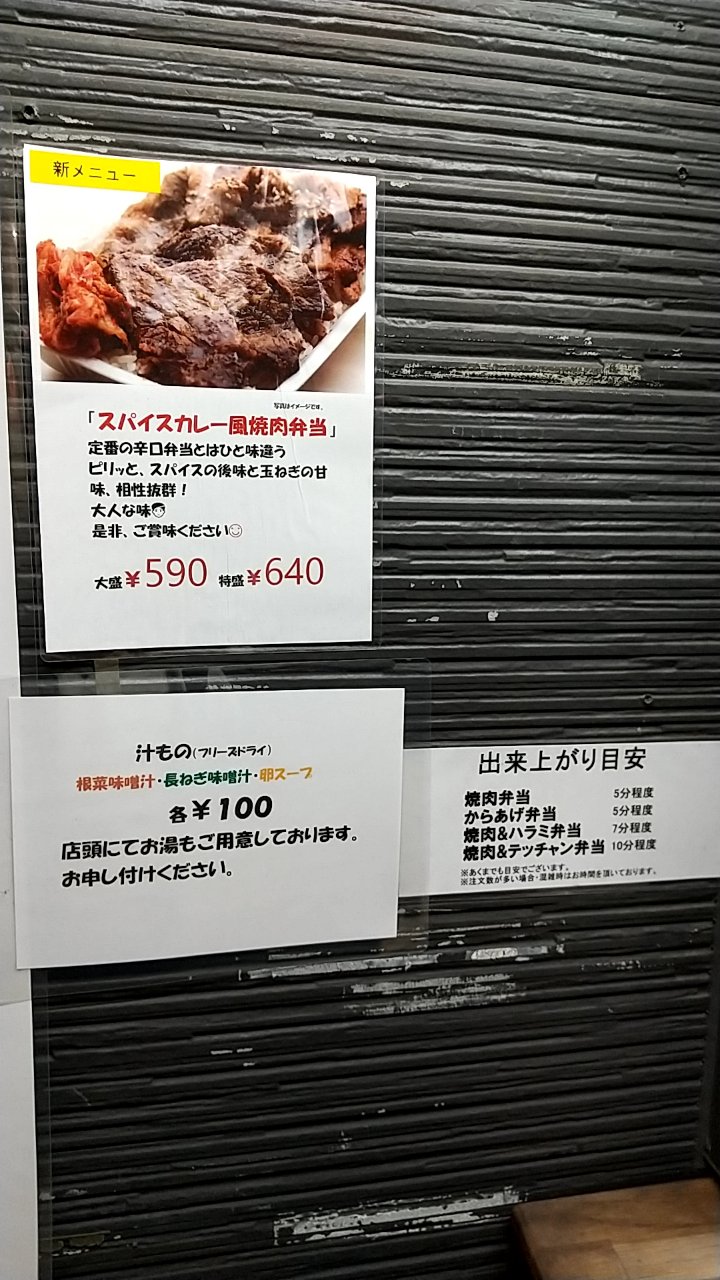 新メニュー
写真はイメージです。
「スパイスカレー風焼肉弁当」
定番の辛口弁当とはひと味違う
ピリッと、スパイスの後味と玉ねぎの甘
味、相性抜群！
大人な味
是非、ご賞味ください
大盛¥590 特盛¥640
汁もの(フリーズドライ)
根菜味噌汁・長ねぎ味噌汁・卵スープ
各¥100
店頭にてお湯もご用意しております。
お申し付けください。
出来上がり目安
焼肉弁当 5分程度
からあげ弁当 5分程度
焼肉&ハラミ弁当 7分程度
焼肉&テッチャン弁当 10分程度
※あくまでも目安でございます。
※注文数が多い場合・混雑時はお時間を頂いております。